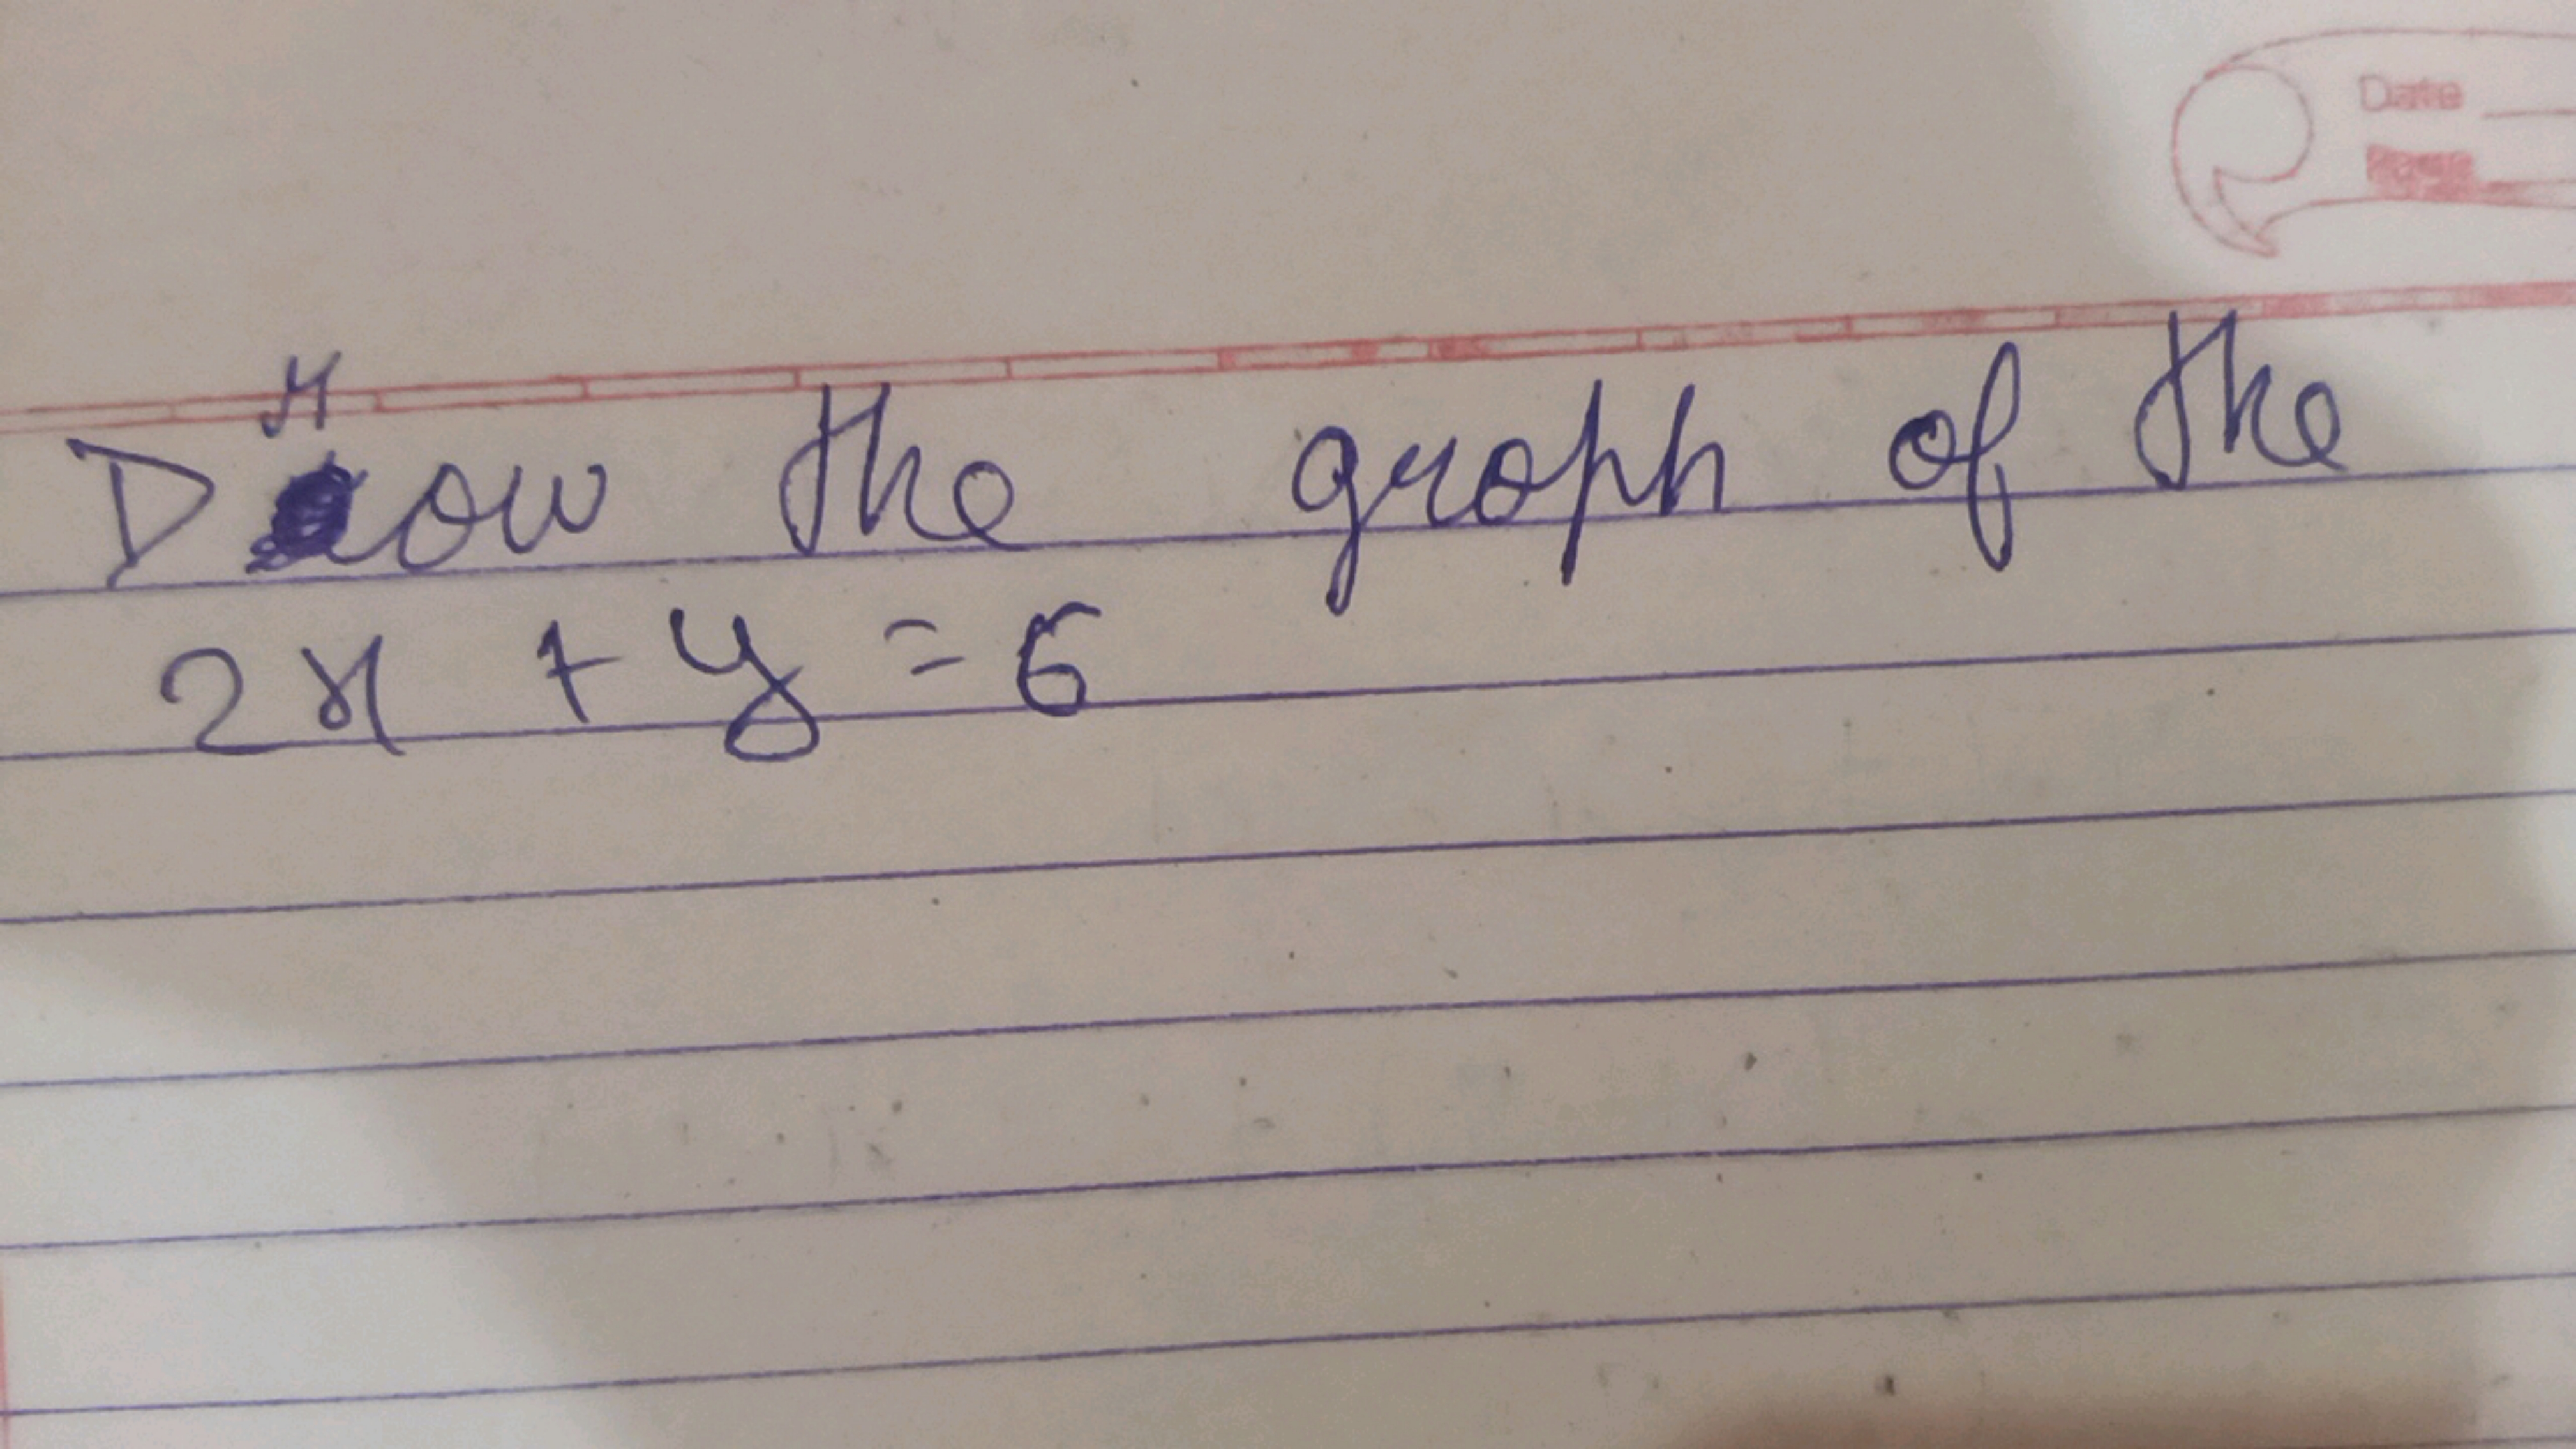 Date
Page
Draw the graph of the
2x + y = 6